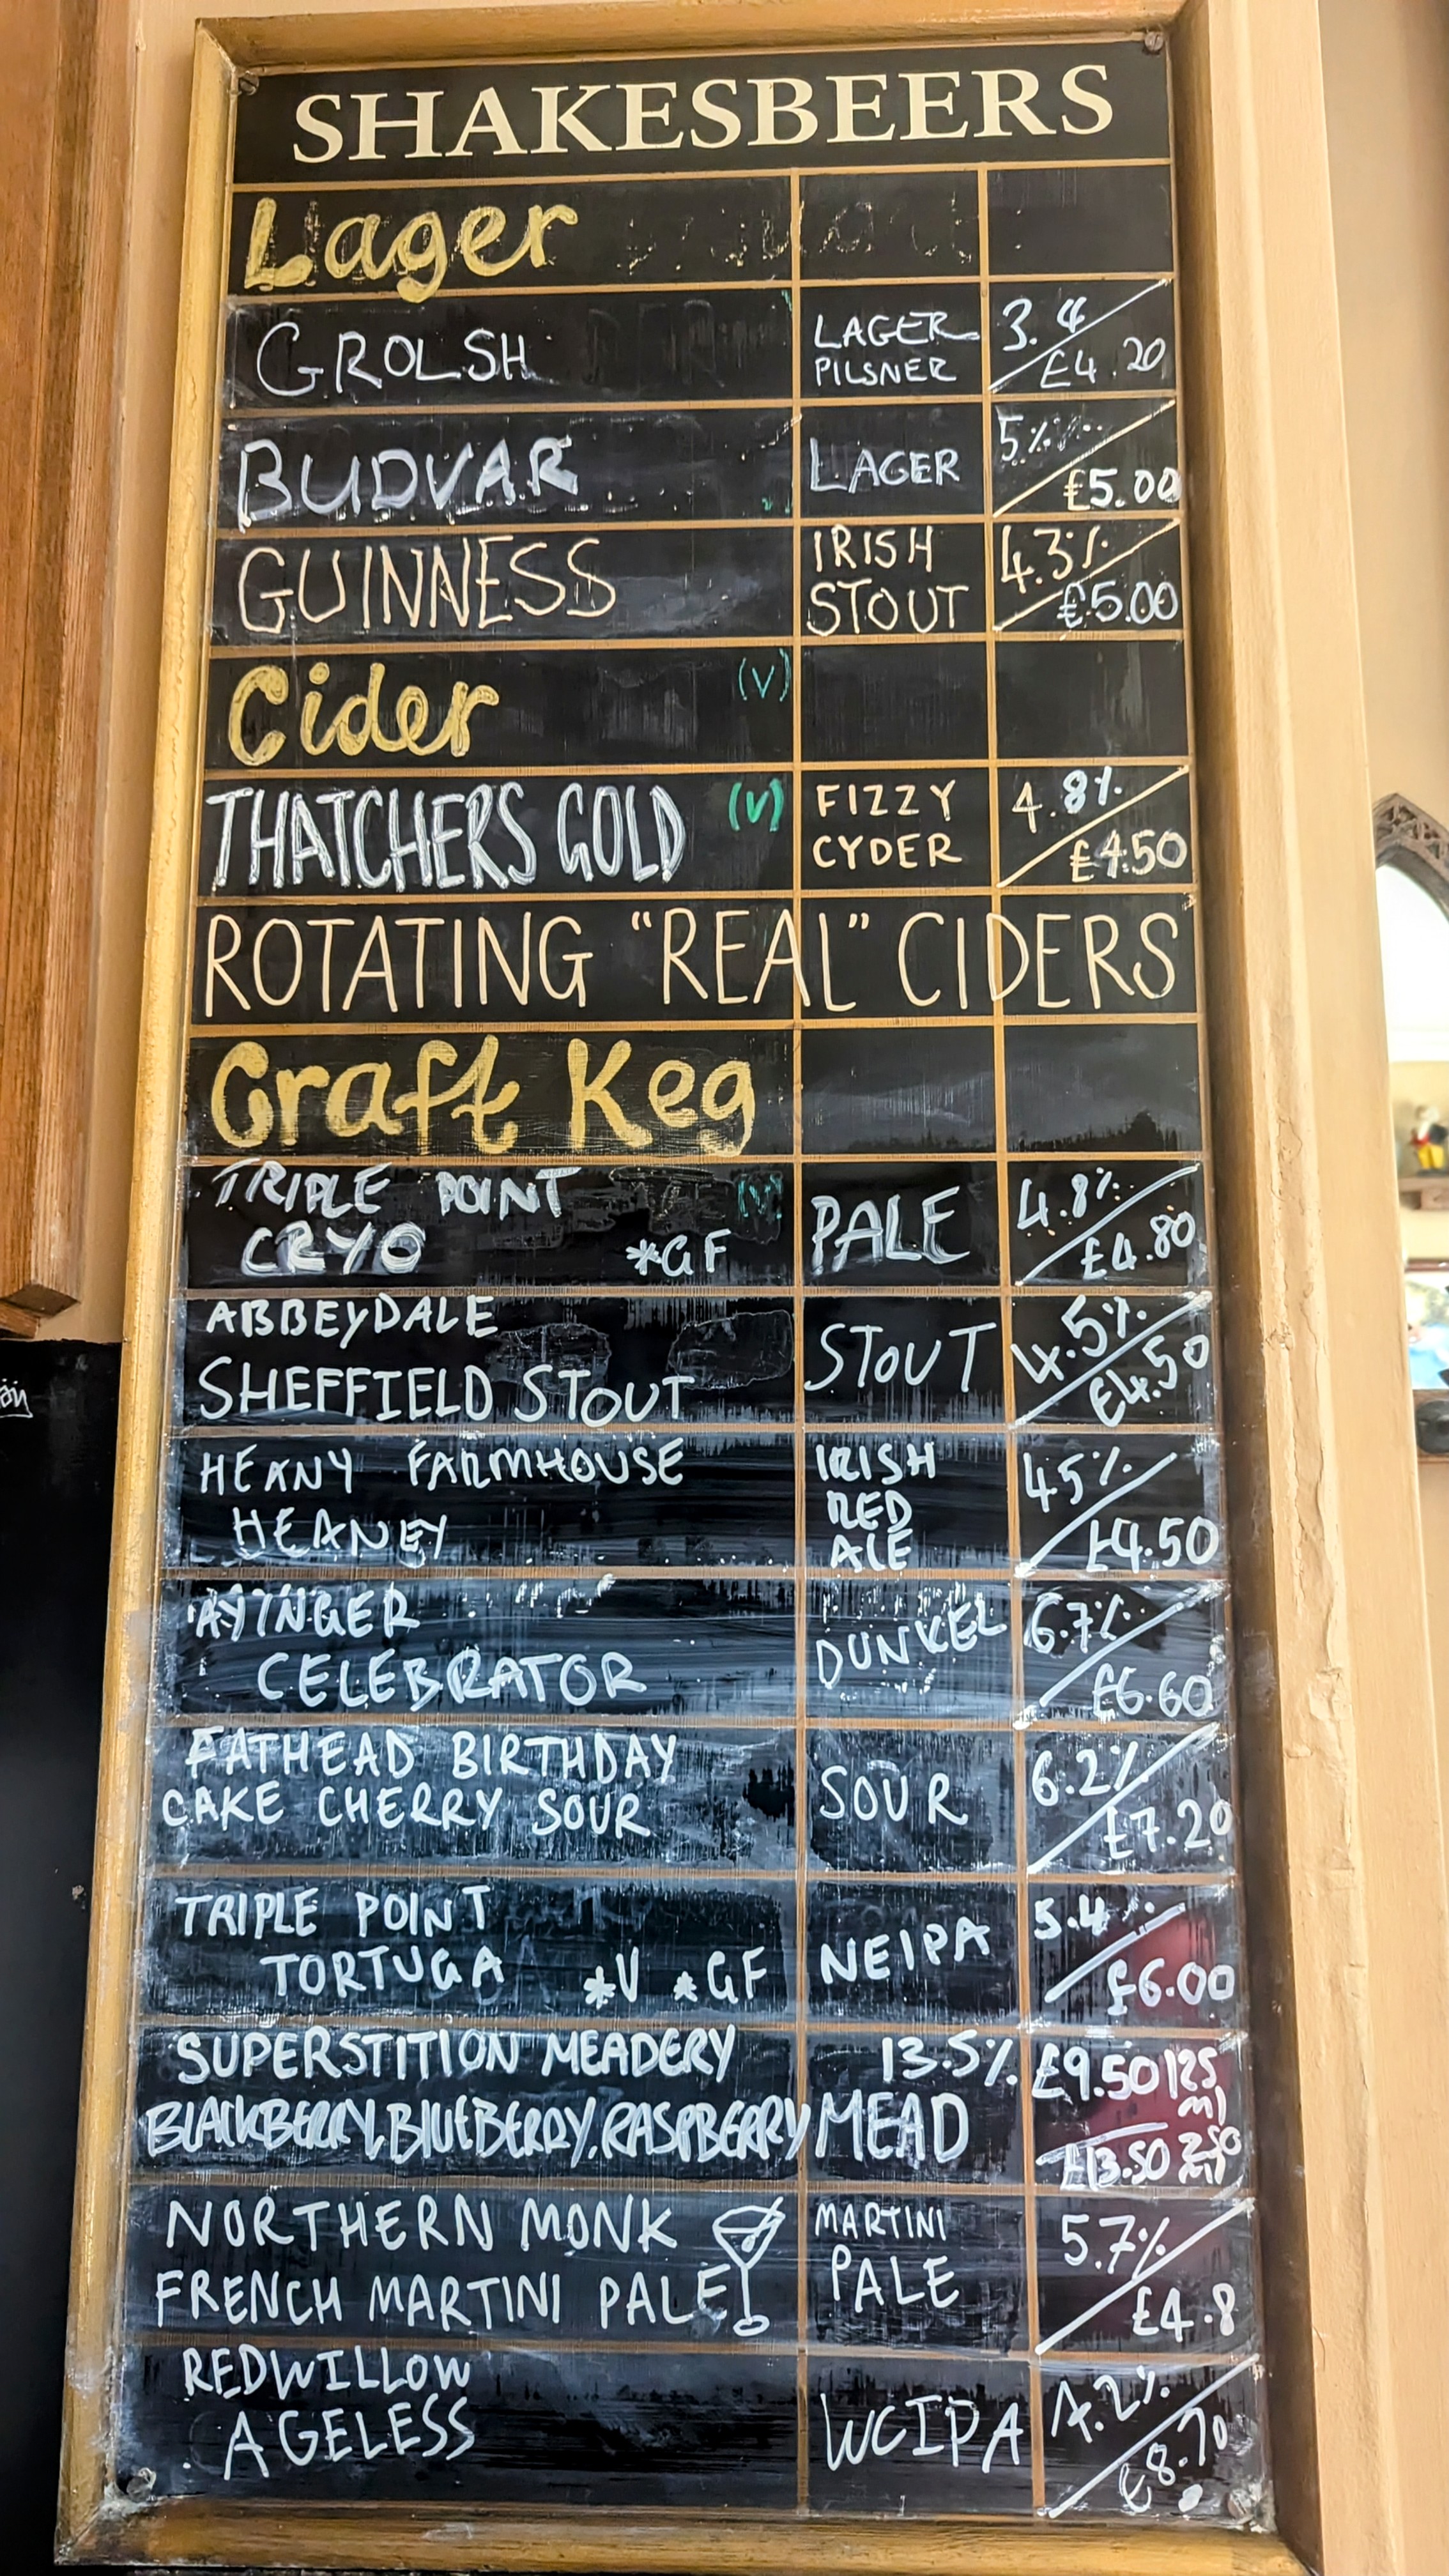 SHAKESBEERS
Lager
GROLSH
LAGER
PILSNER
3.4
£4.20
BUDVAR
LAGER
5%
£5.00
GUINNESS
IRISH
STOUT
4.3%
£5.00
Cider (V)
THATCHERS GOLD (V)
FIZZY
CYDER
4.8%
£4.50
ROTATING "REAL" CIDERS
Craft Keg
TRIPLE POINT (V)
CRYO *GF
PALE
4.8%
£4.80
ABBEYDALE
SHEFFIELD STOUT
STOUT
4.5%
£4.50
HEANY FARMHOUSE
HEANEY
IRISH
RED
ALE
4.5%
£4.50
AYINGER
CELEBRATOR
DUNKEL
6.7%
£6.60
FATHEAD BIRTHDAY
CAKE CHERRY SOUR
SOUR
6.2%
£7.20
TRIPLE POINT
TORTUGA *V *GF
NEIPA
5.4%
£6.00
SUPERSTITION MEADERY
BLACKBERRY, BLUEBERRY, RASPBERRY
13.5%
MEAD
£9.50 125
ml
£13.50 250
ml
NORTHERN MONK
FRENCH MARTINI PALE
MARTINI
PALE
5.7%
£4.8
REDWILLOW
AGELESS
WCIPA
7.2%
£8.70